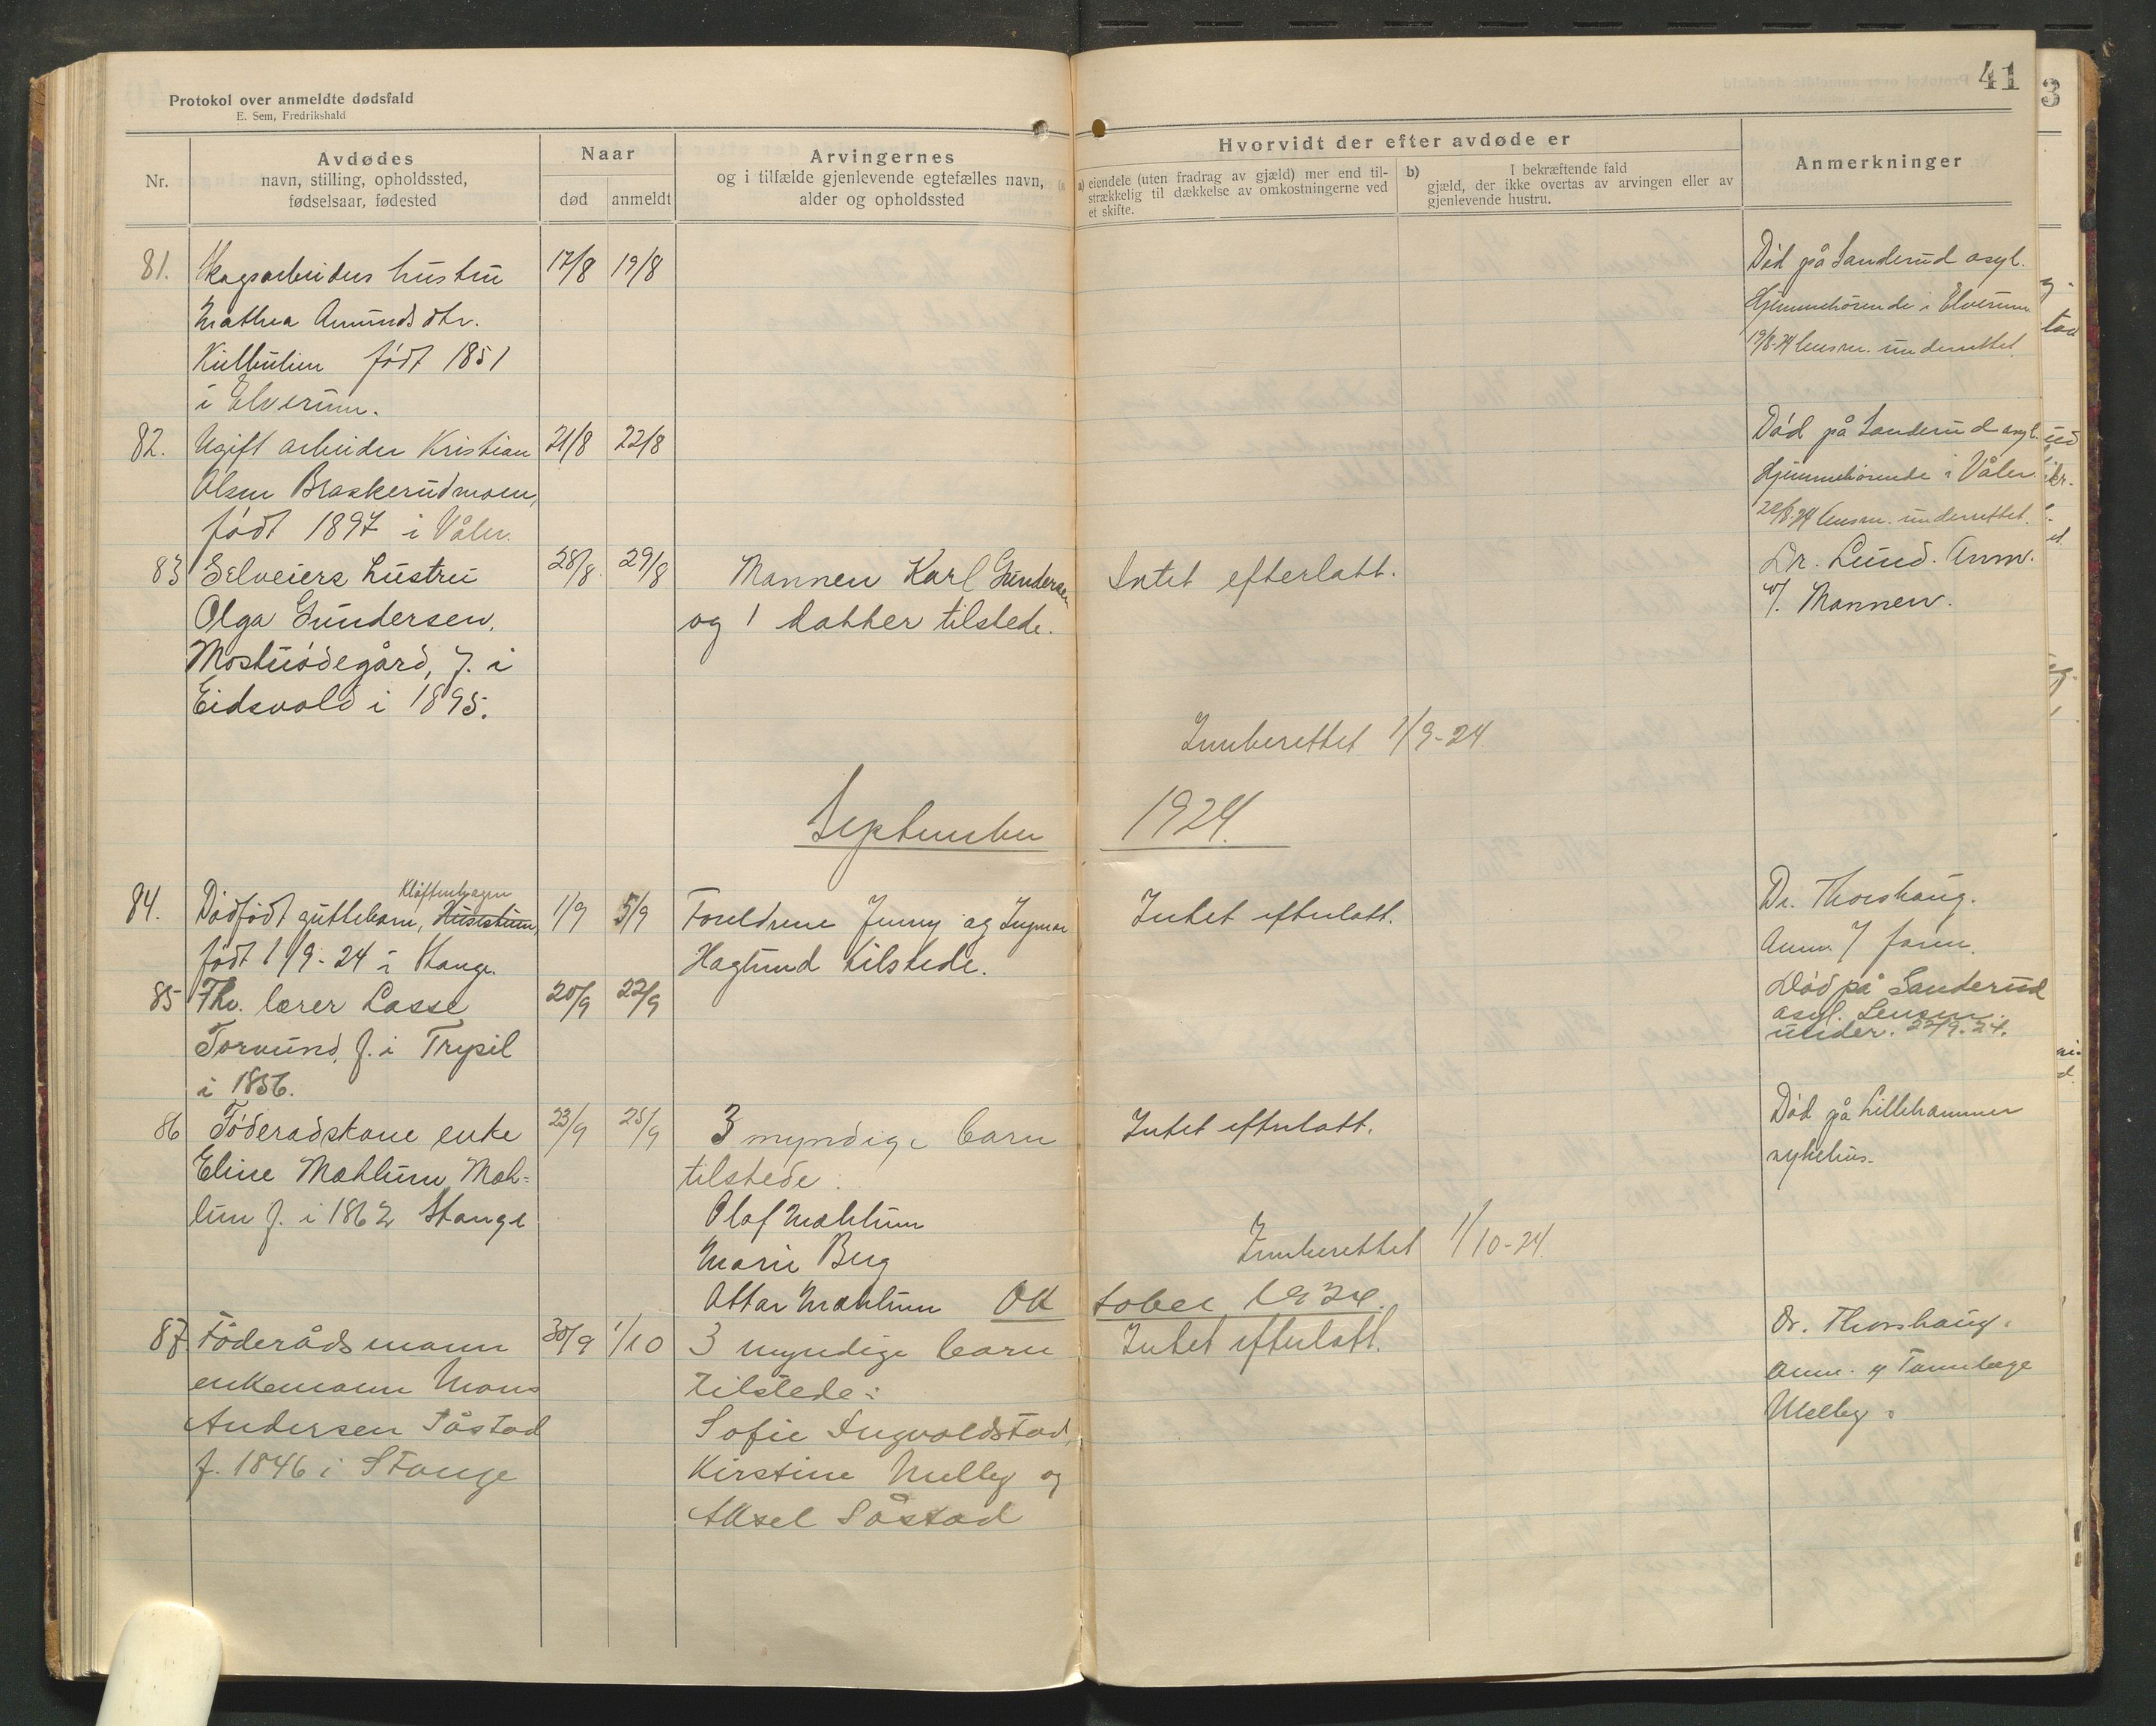 41
3
Protokol over anmeldte dødsfald
E. Sem, Fredrikshald
Nr.
Avdødes
navn, stilling, opholdssted,
fødselsaar, fødested
Naar
død
anmeldt
Arvingernes
og i tilfælde gjenlevende egtefælles navn,
alder og opholdssted
Hvorvidt der efter avdøde er
a) eiendele (uten fradrag av gjæld) mer end til-
strækkelig til dækkelse av omkostningerne ved
et skifte.
b) I bekræftende fald
gjæld, der ikke overtas av arvingen eller av
gjenlevende hustru.
Anmerkninger
81. Skogsarbeiders hustru 17/8 19/8
Mathea Amundsdtr.
født 1851
i Elverum.
Död på Sanderud asyl.
Hjemmehörende i Elverum
19/8-24 lensm. underrettet.
82. Ugift arbeider Kristian 21/8 22/8
Olsen Braskerudmoen,
født 1897 i Våler.
Död på Sanderud asyl.
Hjemmehörende i Våler.
22/8-24 lensm. underrettet.
83 Selveiers hustru 28/8 29/8 Mannen Karl Gundersen Intet efterlatt.
Olga Gundersen, og 1 datter tilstede.
Mostuödegård, f. i
Eidsvold i 1895.
Dr. Lund. Anm.
v/. Mannen.
Innberettet 1/9-24
September 1924.
Kløftenhagen
84. Dödfödt guttebarn, 1/9 5/9 Foreldrene Jenny og Ingvar Intet efterlatt.
født 1/9-24 i Stange. Haglund tilstede.
Dr. Thorshaug.
Anm. v/ faren.
85 Fhv. lærer Lasse 20/9 22/9
Torvund, f. i Trysil
i 1856.
Död på Sanderud
asyl. Lensm.
under. 22/9-24.
86 Föderadskone enke 23/9 25/9 3 myndige barn Intet efterlatt.
Eline Mæhlum, Mæh- tilstede.
lum f. i 1862 Stange
Olaf Mæhlum
Marie Berg
Ottar Mæhlum
Död på Lillehammer
sykehus.
Innberettet 1/10-24.
Oktober 1924.
87. Föderåds mann 30/9 1/10 3 myndige barn Intet efterlatt.
enkemann Mons tilstede:
Andersen Såstad Sofie Ingvoldstad,
f. 1846 i Stange Kirstine Melby og
Aksel Såstad
Dr. Thorshaug.
Anm. v/ Tannlæge
Melby.